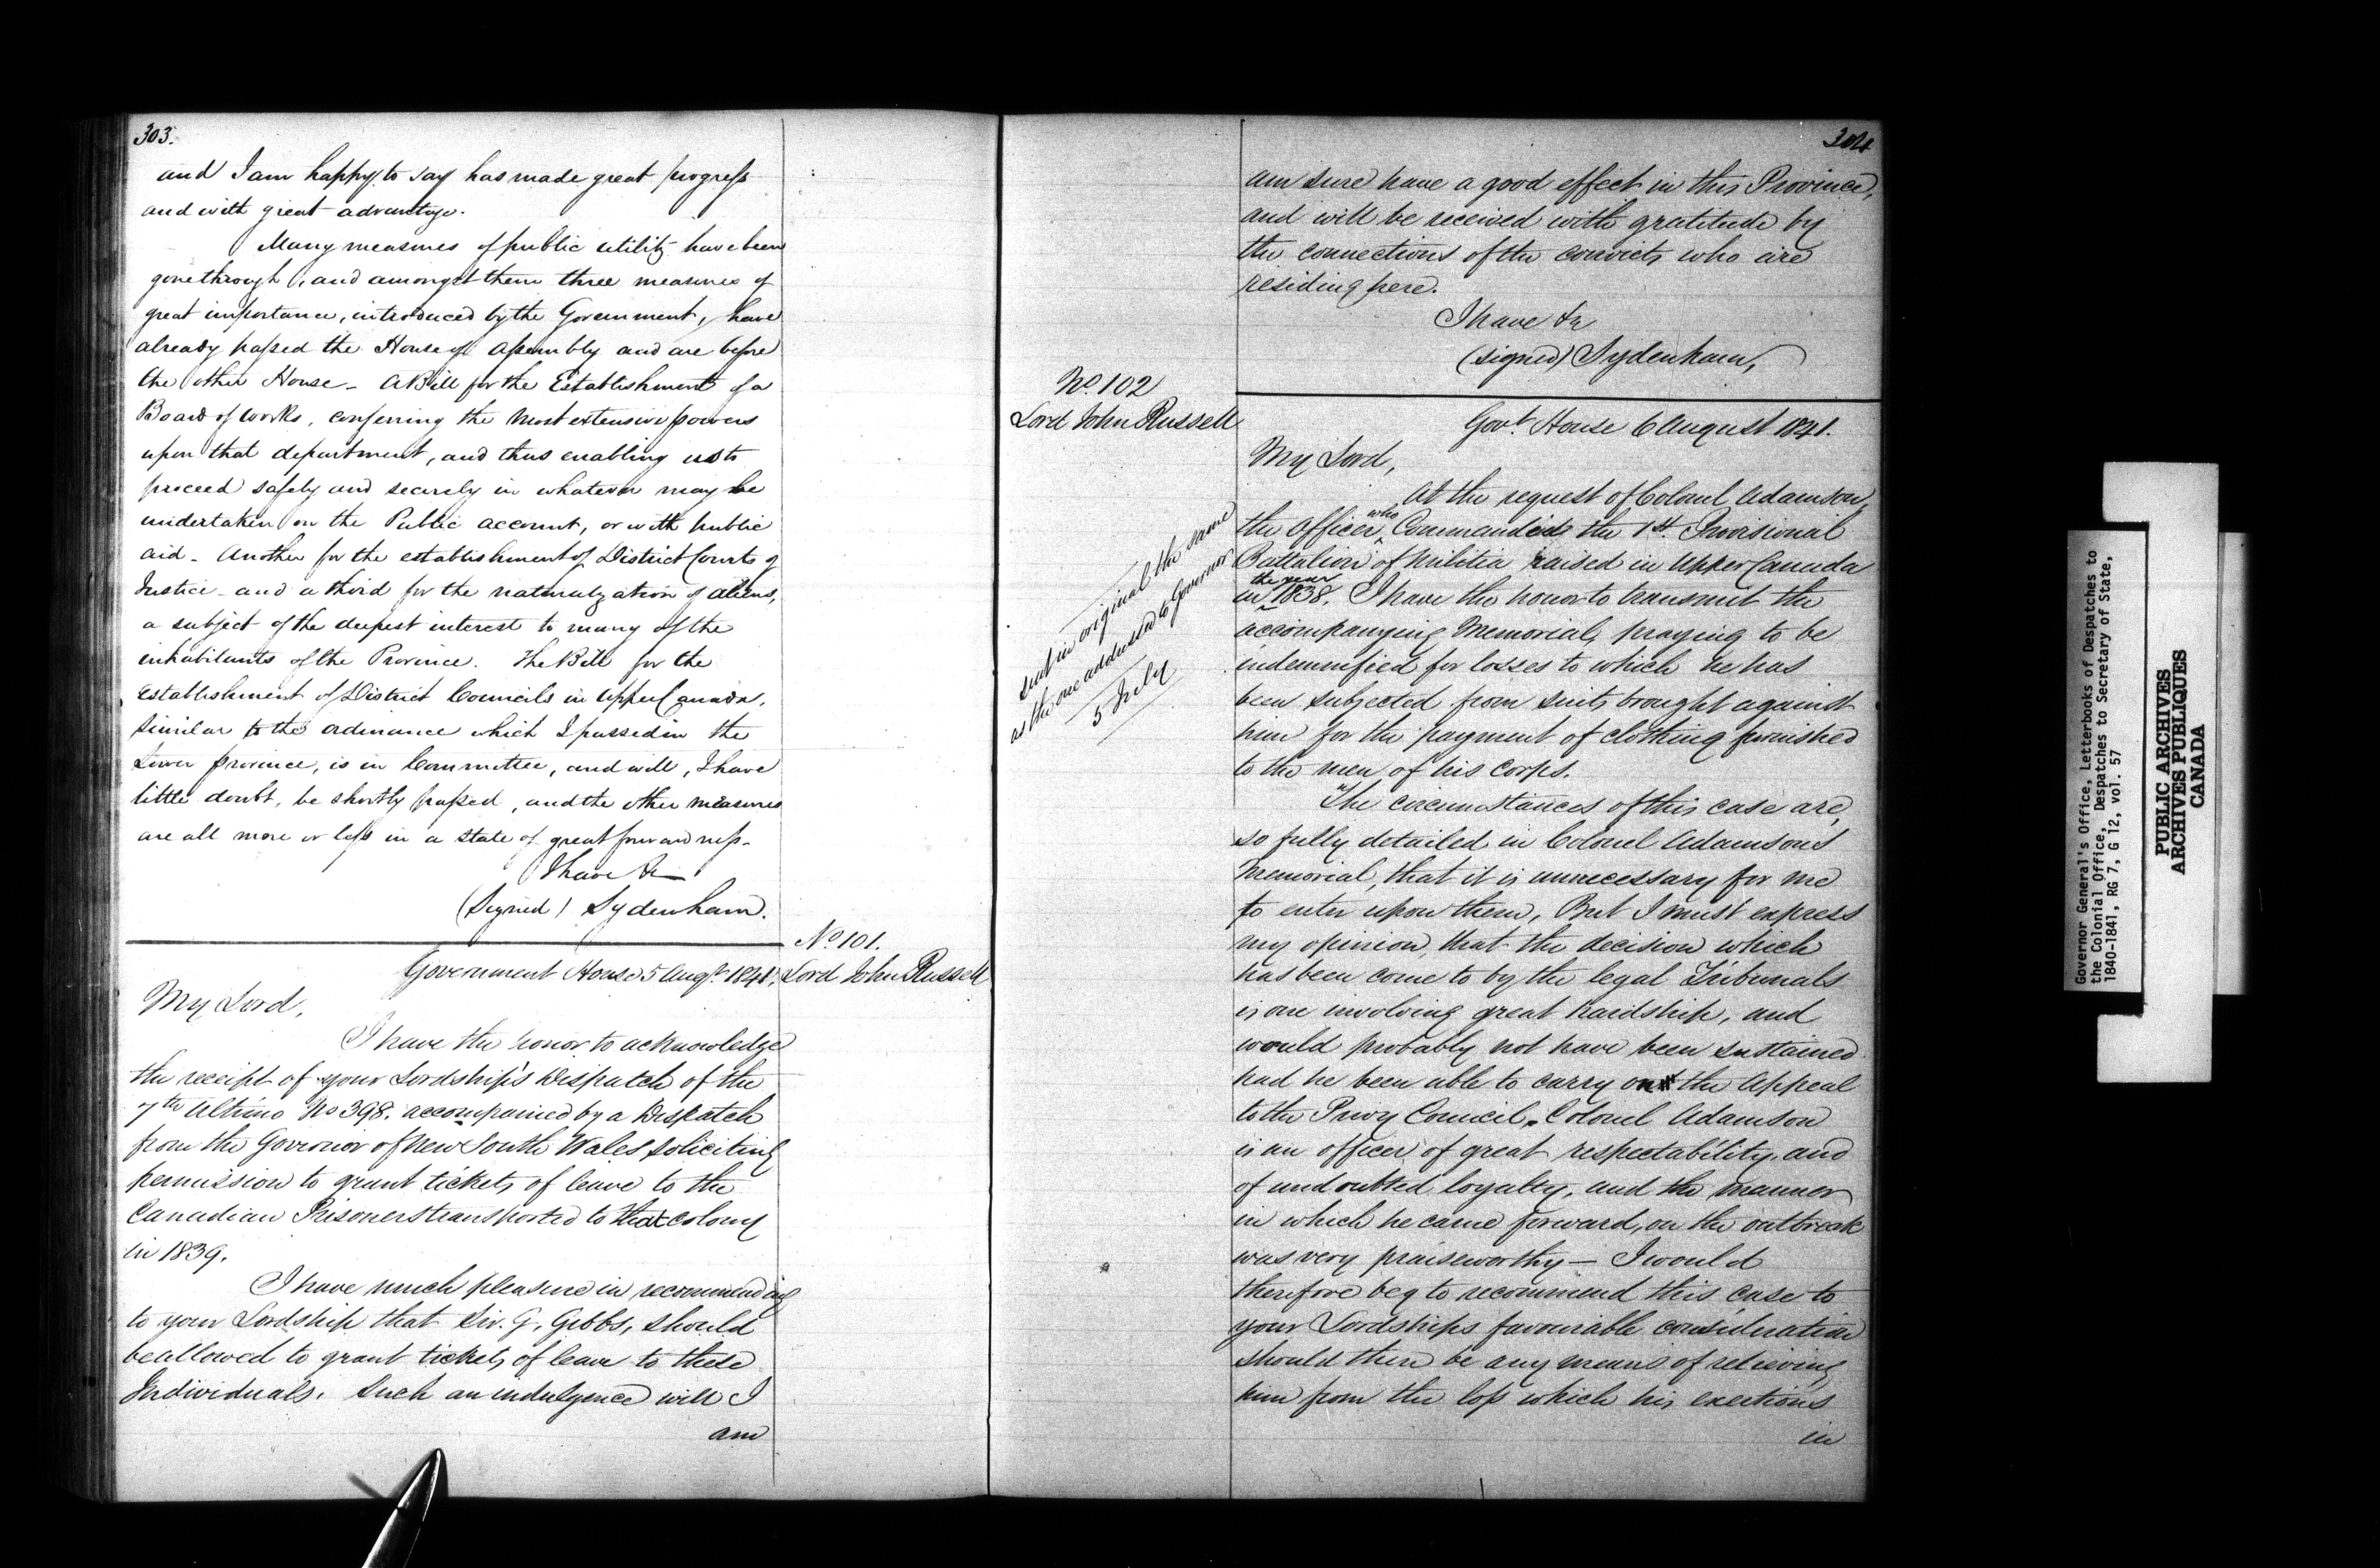 303.
and I am happy to say has made great progress
and with great advantage.
Many measures of public utility have been
gone through, and amongst them three measures of
great importance, introduced by the Government, have
already passed the House of Assembly and are before
the other House - A Bill for the Establishment of a
Board of Works, conferring the most extensive powers
upon that department, and thus enabling us to
proceed safely and securely in whatever may be
undertaken on the Public account, or with public
aid - Another for the establishment of District Courts of
Justice - and a third for the naturalization of aliens,
a subject of the deepest interest to many of the
inhabitants of the Province. The Bill for the
establishment of District Councils in Upper Canada,
similar to the ordinance which I passed in the
Lower province, is in Committee, and will, I have
little doubt, be shortly passed, and the other measures
are all more or less in a state of great forwardness -
I have &c
(Signed) Sydenham.
No 101.
Lord John Russell
Government House 5 Augt. 1841.
My Lord,
I have the honor to acknowledge
the receipt of your Lordship's Dispatch of the
7th Ultimo No 398. accompanied by a Dispatch
from the Governor of New South Wales soliciting
permission to grant tickets of leave to the
Canadian Prisoners transported to that colony
in 1839.
I have much pleasure in recommending
to your Lordship that Sir. G. Gibbs, should
be allowed to grant tickets of leave to these
Individuals. Such an indulgence will I
am
304
am sure have a good effect in this Province,
and will be received with gratitude by
the connections of the convicts who are
residing here.
I have &c
(signed) Sydenham,
No. 102
Lord John Russell
Govt. House 6 August 1841.
My Lord,
At the request of Colonel Adamson,
the Officer who Commanded the 1st. Provisional
Battalion of Militia raised in Upper Canada
in the year 1838. I have the honor to transmit the
accompanying Memorial, praying to be
indemnified for losses to which he has
been subjected from suits brought against
him for the payment of clothing furnished
to the men of his corps.
sent in original the same
as the one addressed to Governor
5 July
The circumstances of this case are,
so fully detailed in Colonel Adamson's
Memorial, that it is unnecessary for me
to enter upon them, But I must express
my opinion, that the decision which
has been come to by the legal Tribunals
is one involving great hardship, and
would probably not have been sustained
had he been able to carry on the Appeal
to the Privy Council. Colonel Adamson
is an officer of great respectability, and
of undoubted loyalty, and the manner
in which he came forward, on the outbreak
was very praiseworthy — I would
therefore beg to recommend this case to
your Lordships favourable consideration
should there be any means of relieving
him from the loss which his exertions
in
Governor General's Office, Letterbooks of Despatches to
the Colonial Office, Despatches to Secretary of State,
1840-1841, RG 7, G 12, vol. 57
PUBLIC ARCHIVES
ARCHIVES PUBLIQUES
CANADA